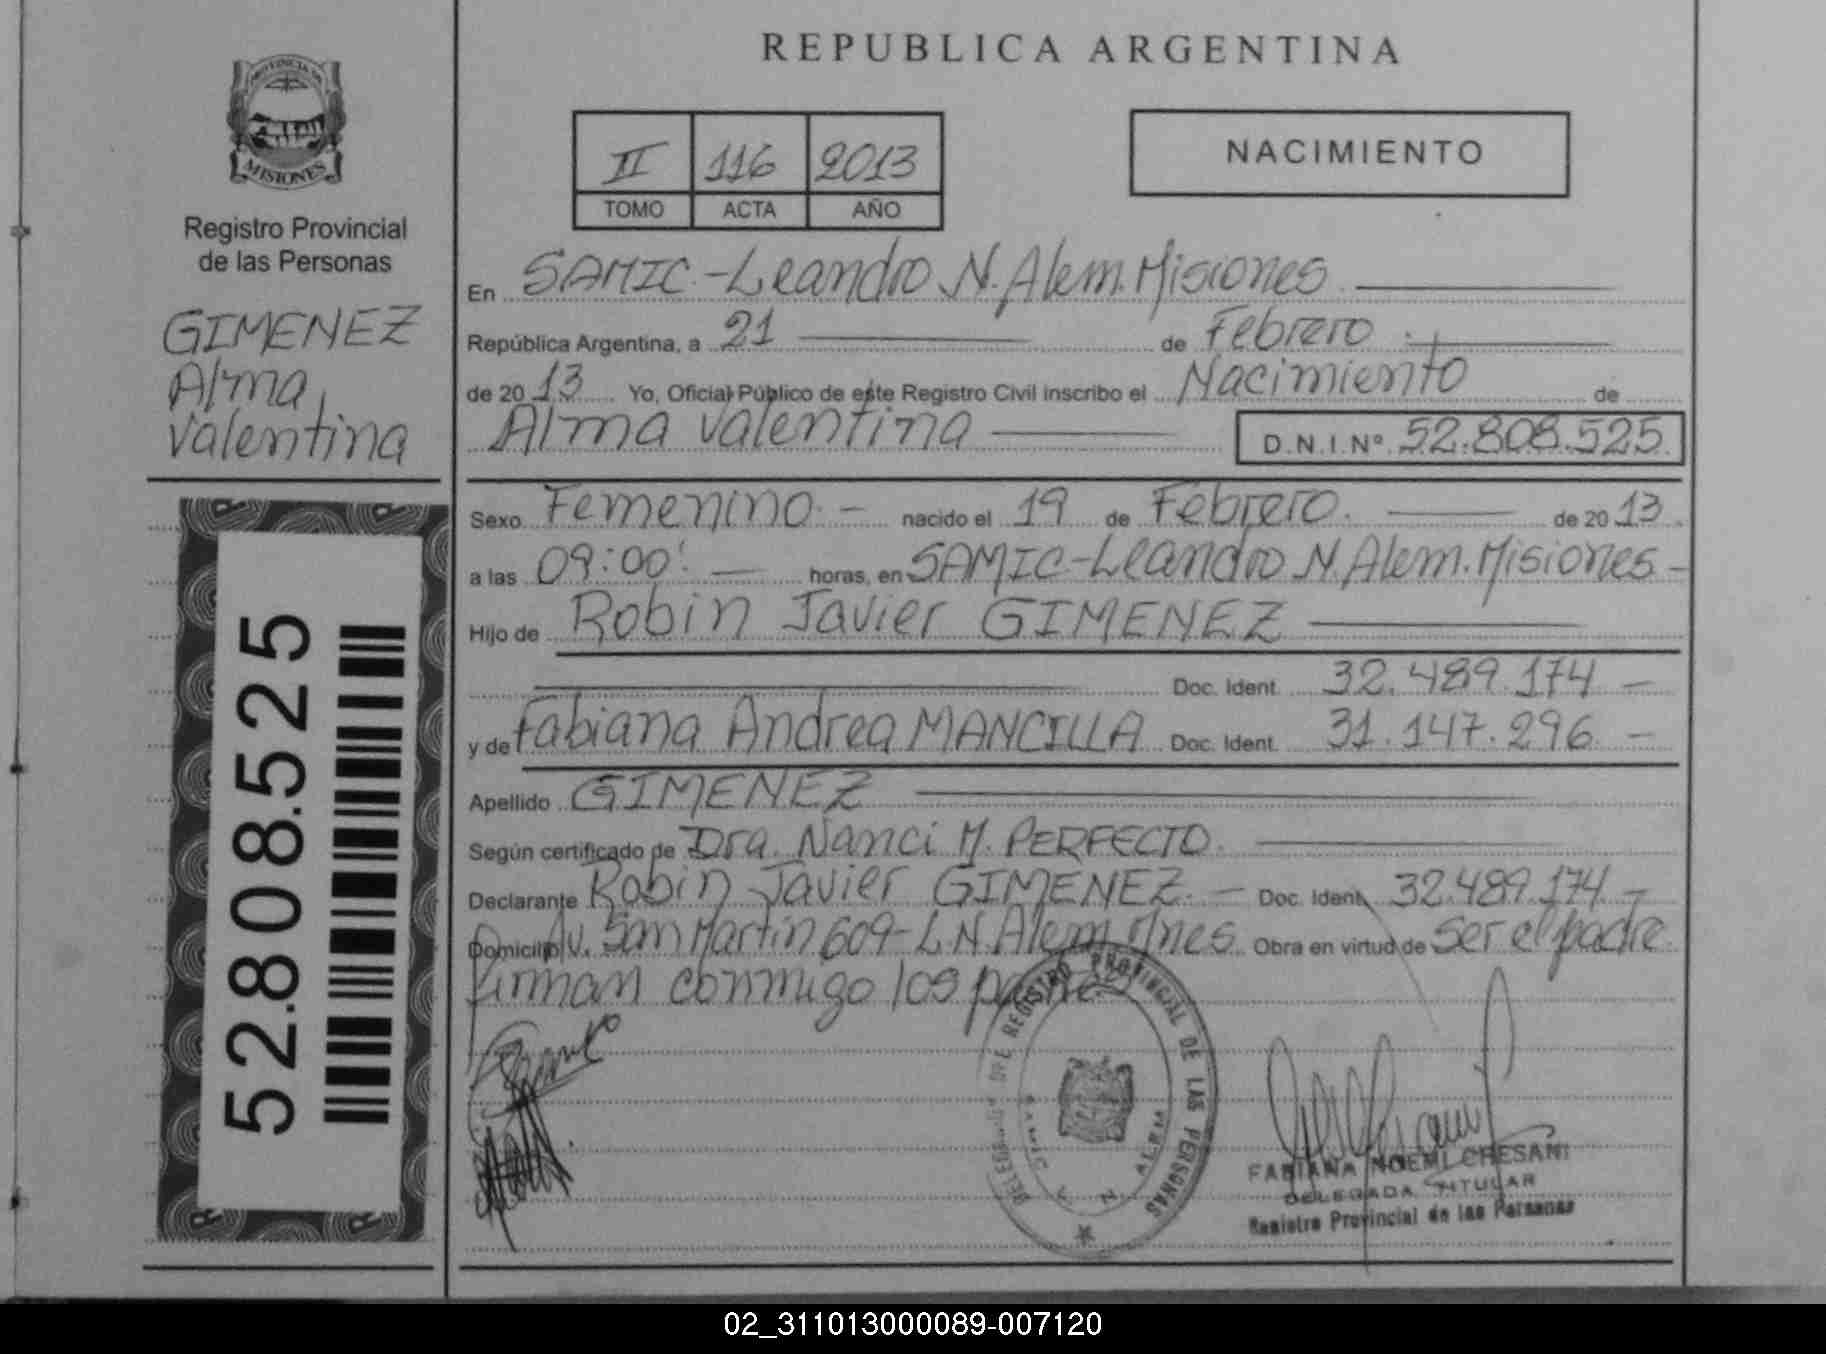 PROVINCIA DE
MISIONES
Registro Provincial
de las Personas
GIMENEZ
Alma
Valentina
52.808.525
REPUBLICA ARGENTINA
II 116 2013
TOMO ACTA AÑO
NACIMIENTO
En SAMIC-Leandro N. Alem. Misiones
República Argentina, a 21 de Febrero
de 2013 Yo, Oficial Público de este Registro Civil inscribo el Nacimiento de
Alma Valentina D.N.I.Nº 52.808.525
Sexo Femenino - nacido el 19 de Febrero. de 2013
a las 09:00 horas, en SAMIC-Leandro N. Alem. Misiones -
Hijo de Robin Javier GIMENEZ
Doc. Ident. 32.489.174 -
y de Fabiana Andrea MANCILLA Doc. Ident. 31.147.296. -
Apellido GIMENEZ
Según certificado de Dra. Nanci M. PERFECTO.
Declarante Robin Javier GIMENEZ. - Doc. Ident. 32.489.174 -
Domicilio Av. San Martin 609-L.N. Alem. Mnes. Obra en virtud de ser el padre.
firman conmigo los padres
DELEGADA DEL REGISTRO PROVINCIAL DE LAS PERSONAS
SAMIC L. N. ALEM
FABIANA NOEMI CRESANI
DELEGADA TITULAR
Registro Provincial de las Personas
02_311013000089-007120